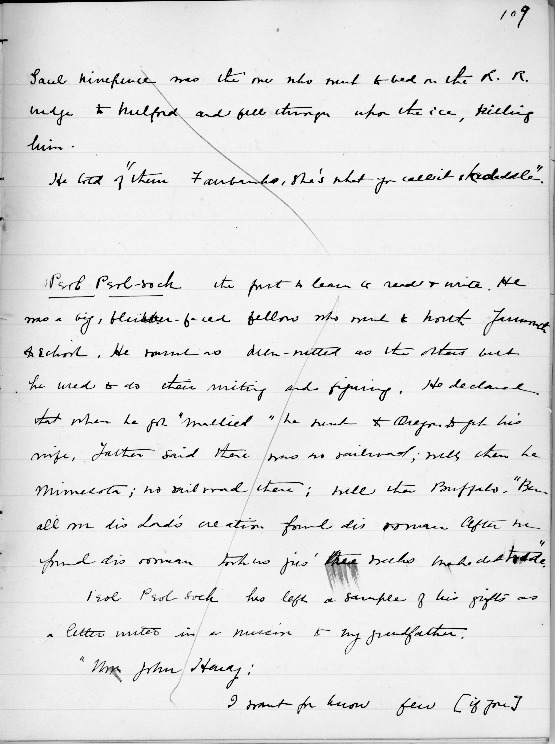 109
Saul Ninepence was the one who went to bed on the R. R.
bridge to Milford and fell through upon the ice, killing
him.
He told of "them Fairbanks, she's what you call it skedaddle".
Peol Peol-sock the first to learn to read & write. He
was a big, fellow who went to North Yarmouth
to school. He was no witted as the others but
he used to do their writing and figuring. He declared
that when he got "mullied" he went to Oregon to get his
wife. Father said there was no railroad; well then he
Minnesota; no railroad there; well then Buffalo. "Ben
all on dis Lord's creation found dis woman After we
found dis woman took us jus' three weeks make dat"
Peol Peol Sock has left a sample of his gifts as
a letter writer in a missive to my grandfather.
"Mr John Hardy:
I want for know few [if you]